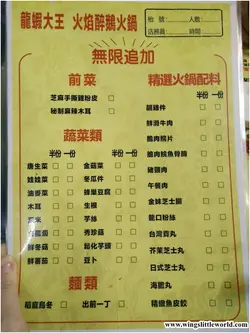 龍蝦大王 火焰醉鵝火鍋
枱號 人數
店務員 時間
無限追加
前菜
芝麻手撕雞粉皮
秘制麻辣木耳
蔬菜類
半份 一份 半份 一份
唐生菜 金菇菜
娃娃菜 冬瓜件
油麥菜 蜂巢豆腐
木耳 生根
粟米 芋絲
秀珍菇
鮮冬菇 鬆化芋頭
鮮蕃茄 豆卜
麵類
稻庭烏冬 出前一丁
精選火鍋配料
半份 一份
鵝雜件
鮮滑牛肉
鮮鯇魚骨腩
豬頸肉
午餐肉
金妹芝士腸
龍口粉絲
台灣貢丸
芥菜芝士丸
日式芝士丸
海膽丸
精緻魚皮餃
www.wingslittleworld.com